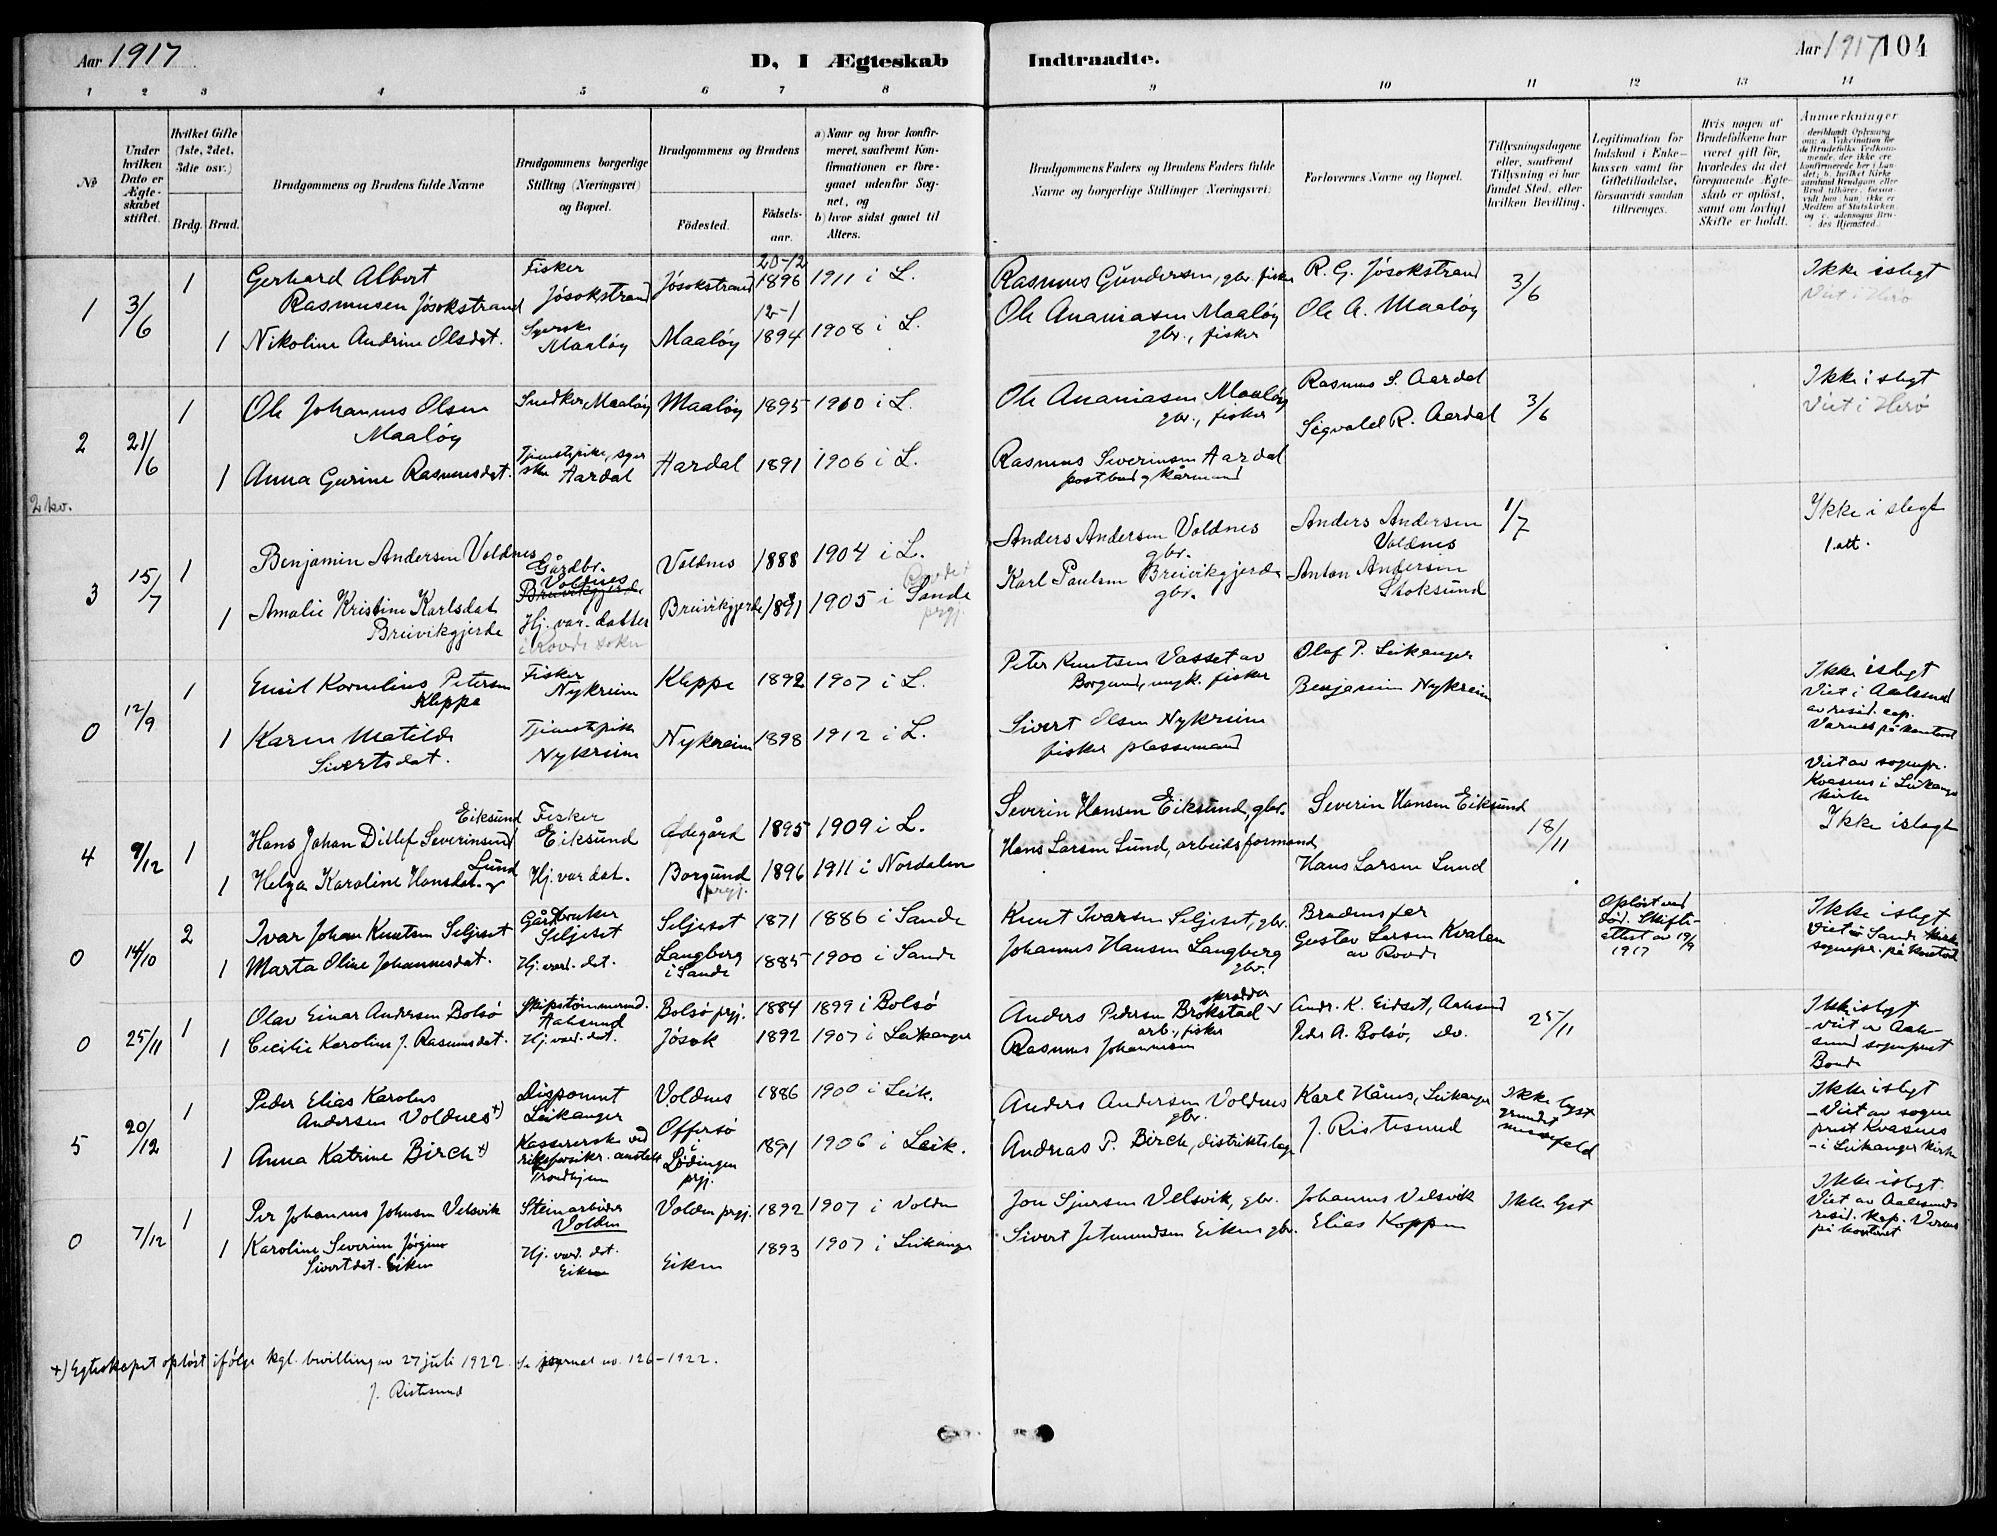 Aar 1917
D, I Ægteskab
Indtraadte.
Aar 1917 104
1 2 3 4 5 6 7 8 9 10 11 12 13 14
No
Under hvilken Dato er Ægteskabet stiftet.
Hvilket Gifte (1ste, 2det, 3die osv.)
Brdg. Brud.
Brudgommens og Brudens fulde Navne
Brudgommens borgerlige Stilling (Næringsvei) og Bopæl.
Brudgommens og Brudens
Födested.
Födsels-aar.
a) Naar og hvor konfirmeret, saafremt Konfirmationen er foregaaet udenfor Sognet, og
b) hvor sidst gaaet til Alters.
Brudgommens Faders og Brudens Faders fulde Navne og borgerlige Stillinger (Næringsvei)
Forlovernes Navne og Bopæl.
Tillysningsdagene eller, saafremt Tillysning ei har fundet Sted, efter hvilken Bevilling.
Legitimation for Indskud i Enkekassen samt for Giftetilladelse, forsaavidt saadan tiltrænges.
Hvis nogen af Brudefolkene har været gift før, hvorledes da det foregaaende Ægteskab er opløst, samt om lovligt Skifte er holdt.
Anmerkninger
1 3/6 1 Gerhard Albert Rasmusen Jøsokstrand Fisker Jøsokstrand Jøsokstrand 20-12 1896 1911 i L. Rasmus Gundersen, gbr. fisker R. G. Jøsokstrand 3/6 Ikke i slegt Viet i Herø
1 Nikoline Andrine Olsdat. Syerske Maaløy Maaløy 12-1 1894 1908 i L. Ole Ananiasen Maaløy gbr., fisker Ole A. Maaløy
2 21/6 1 Ole Johannes Olsen Maaløy Snedker, Maaløy Maaløy 1895 1910 i L. Ole Ananiasen Maaløy gbr., fisker Rasmus S. Aardal 3/6 Ikke i slegt Viet i Herø
1 Anna Gurine Rasmusdat. Tjenestpike, syerske Aardal Aardal 1891 1906 i L. Rasmus Severinsen Aardal postbud og kårmand Sigvald R. Aardal
2 kv.
3 15/7 1 Benjamin Andersen Voldnes Gårdbr. Voldnes Voldnes 1888 1904 i L. Anders Andersen Voldnes gbr. Anders Andersen Voldnes 1/7 Ikke i slegt 1 att.
1 Amalie Kristine Karlsdat Breivikgjerde Breivikgjerde Hj. var. datter i Rovde sokn Breivikgjerde 1891 1905 i Sande prgj. Karl Paulsen Breivikgjerde gbr. Anton Andersen Stoksund
0 12/9 1 Emil Kornelius Petersen Kleppe Fisker Nykreim Kleppe 1892 1907 i L. Peter Knutsen Vasset av Borgund, ungk. fisker Olaf P. Leikanger Ikke i slegt Viet i Aalesund av resid. cap. Varnes på kontoret
1 Karen Matilde Sivertsdat. Tjenestpike Nykreim Nykreim 1898 1912 i L. Sivert Olsen Nykreim fisker plassemand Benjamin Nykreim
4 9/12 1 Hans Johan Ditlef Severinsen Eiksund Fisker Eiksund Ødegård 1895 1909 i L. Severin Hansen Eiksund, gbr. Severin Hansen Eiksund 18/11 Viet av sognepr. Kvasnes i Leikanger kirke Ikke i slegt
1 Helga Karoline Hansdat. Lund Hj. var dat. Borgund prgj. 1896 1911 i Nordalen Hans Larsen Lund, arbeidsformand Hans Larsen Lund
0 14/10 2 Ivar Johan Knutsen Seljeset Gårdbruker Seljeset Seljeset 1871 1886 i Sande Knut Ivarsen Seljeset, gbr. Brudens far Opløst ved død. Skifteattest av 19/9 1917 Ikke i slegt Viet i Sande kirke sognepr. på kontoret
1 Marta Oline Johannesdat. Hj. vær. dat. Langberg i Sande 1885 1900 i Sande Johannes Hansen Langberg gbr. Gustav Larsen Kvalen av Rovde
0 25/11 1 Olav Einar Andersen Bolsø Skipstømmermd. Aalesund Bolsø prgj. 1884 1899 i Bolsø Anders Pedersen Brokstad skrædder Andr. K. Eidset, Aalesund 25/11 Ikke i slegt - viet av Aalesund sogneprest Bonde
1 Cecilie Karoline J. Rasmusdat. Hj. vær. dat. Jøsok 1892 1907 i Leikanger Rasmus Johannesen arb., fisker Peder A. Bolsø, do.
5 20/12 1 Peder Elias Karolus Andersen Voldnes +) Disponent Leikanger Voldnes 1886 1900 i Leik. Anders Andersen Voldnes gbr. Karl Hånes, Leikanger Ikke lyst grundet messefald Ikke i slegt - Viet av sogneprest Kvasnes - i Leikanger kirke
1 Anna Katrine Birch +) Kassererske ved riksforsikr. anstalt Trondhjem Offersø i Lødingen prgj. 1891 1906 i Leik. Andreas P. Birch, distriktslæge J. Ristesund
0 7/12 1 Per Johannes Johnsen Velsvik Steinarbeider Volden Volden prgj. 1892 1907 i Volden Jon Sjursen Velsvik, gbr. Johannes Velsvik Ikke lyst Ikke i slegt. Viet av Aalesunds resid. kap. Vernes på kontoret
1 Karoline Severine Jørgine Sivertdat. Eiken Hj. vær. dat. Eiken Eiken 1893 1907 i Leikanger Sivert Jetmundsen Eiken gbr. Elias Koppen
+) Egteskapet opløst ifølge kgl. bevilling av 27 juli 1922. Se journal no. 126-1922.
J. Ristesund